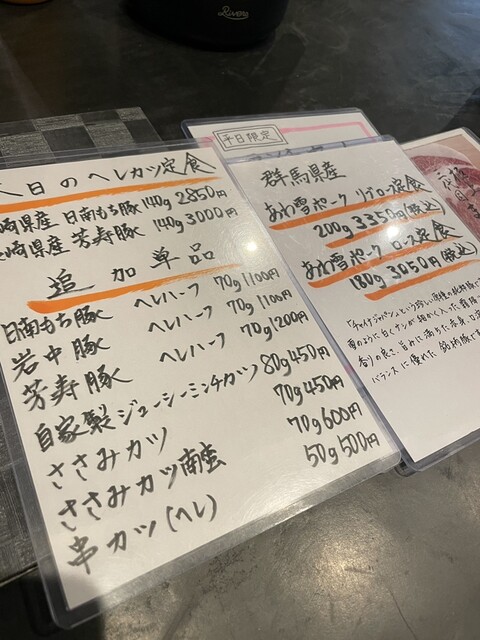 Rivers
日のヘレカツ定食
崎県産 日南もち豚 140g 2850
崎県産 芳寿豚 140g 3000円
追加単品
日南もち豚 ヘレハーフ 70g 1100円
岩中豚 ヘレハーフ 70g 1100円
芳寿豚 ヘレハーフ 70g 1200円
自家製ジューシーミンチカツ 80g 450円
ささみカツ 70g 450円
ささみカツ南蛮 70g 600円
串カツ(ヘレ) 50g 500円
平日限定
群馬県産
あわ雪ポーク リブロース定食
200g 3350円(税込)
あわ雪ポーク ロース定食
180g 3050円(税込)
「チャイナジャパン」という珍しい
雪のように白くサシが細かく入った
香りの良さ、旨わに満ちた赤身、
バランスに優れた 銘柄豚です